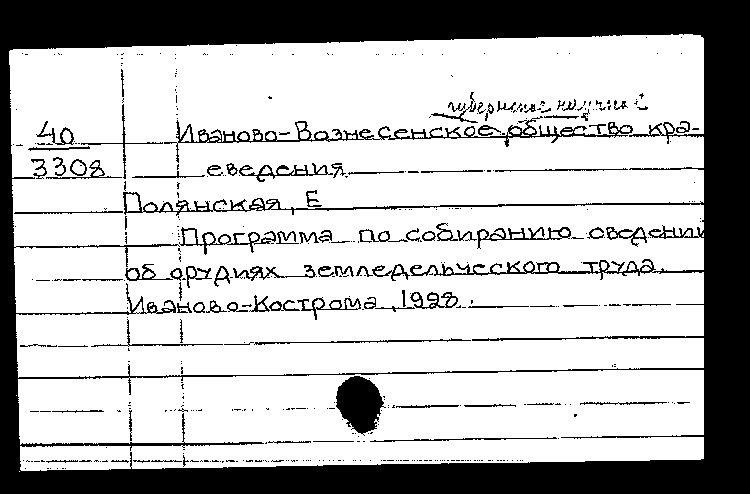 губернское научное
40 Иваново-Вознесенское общество кра-
3308 еведения
Полянская, Е
Программа по собиранию сведений
об орудиях земледельческого труда.
Иваново-Кострома, 1928.